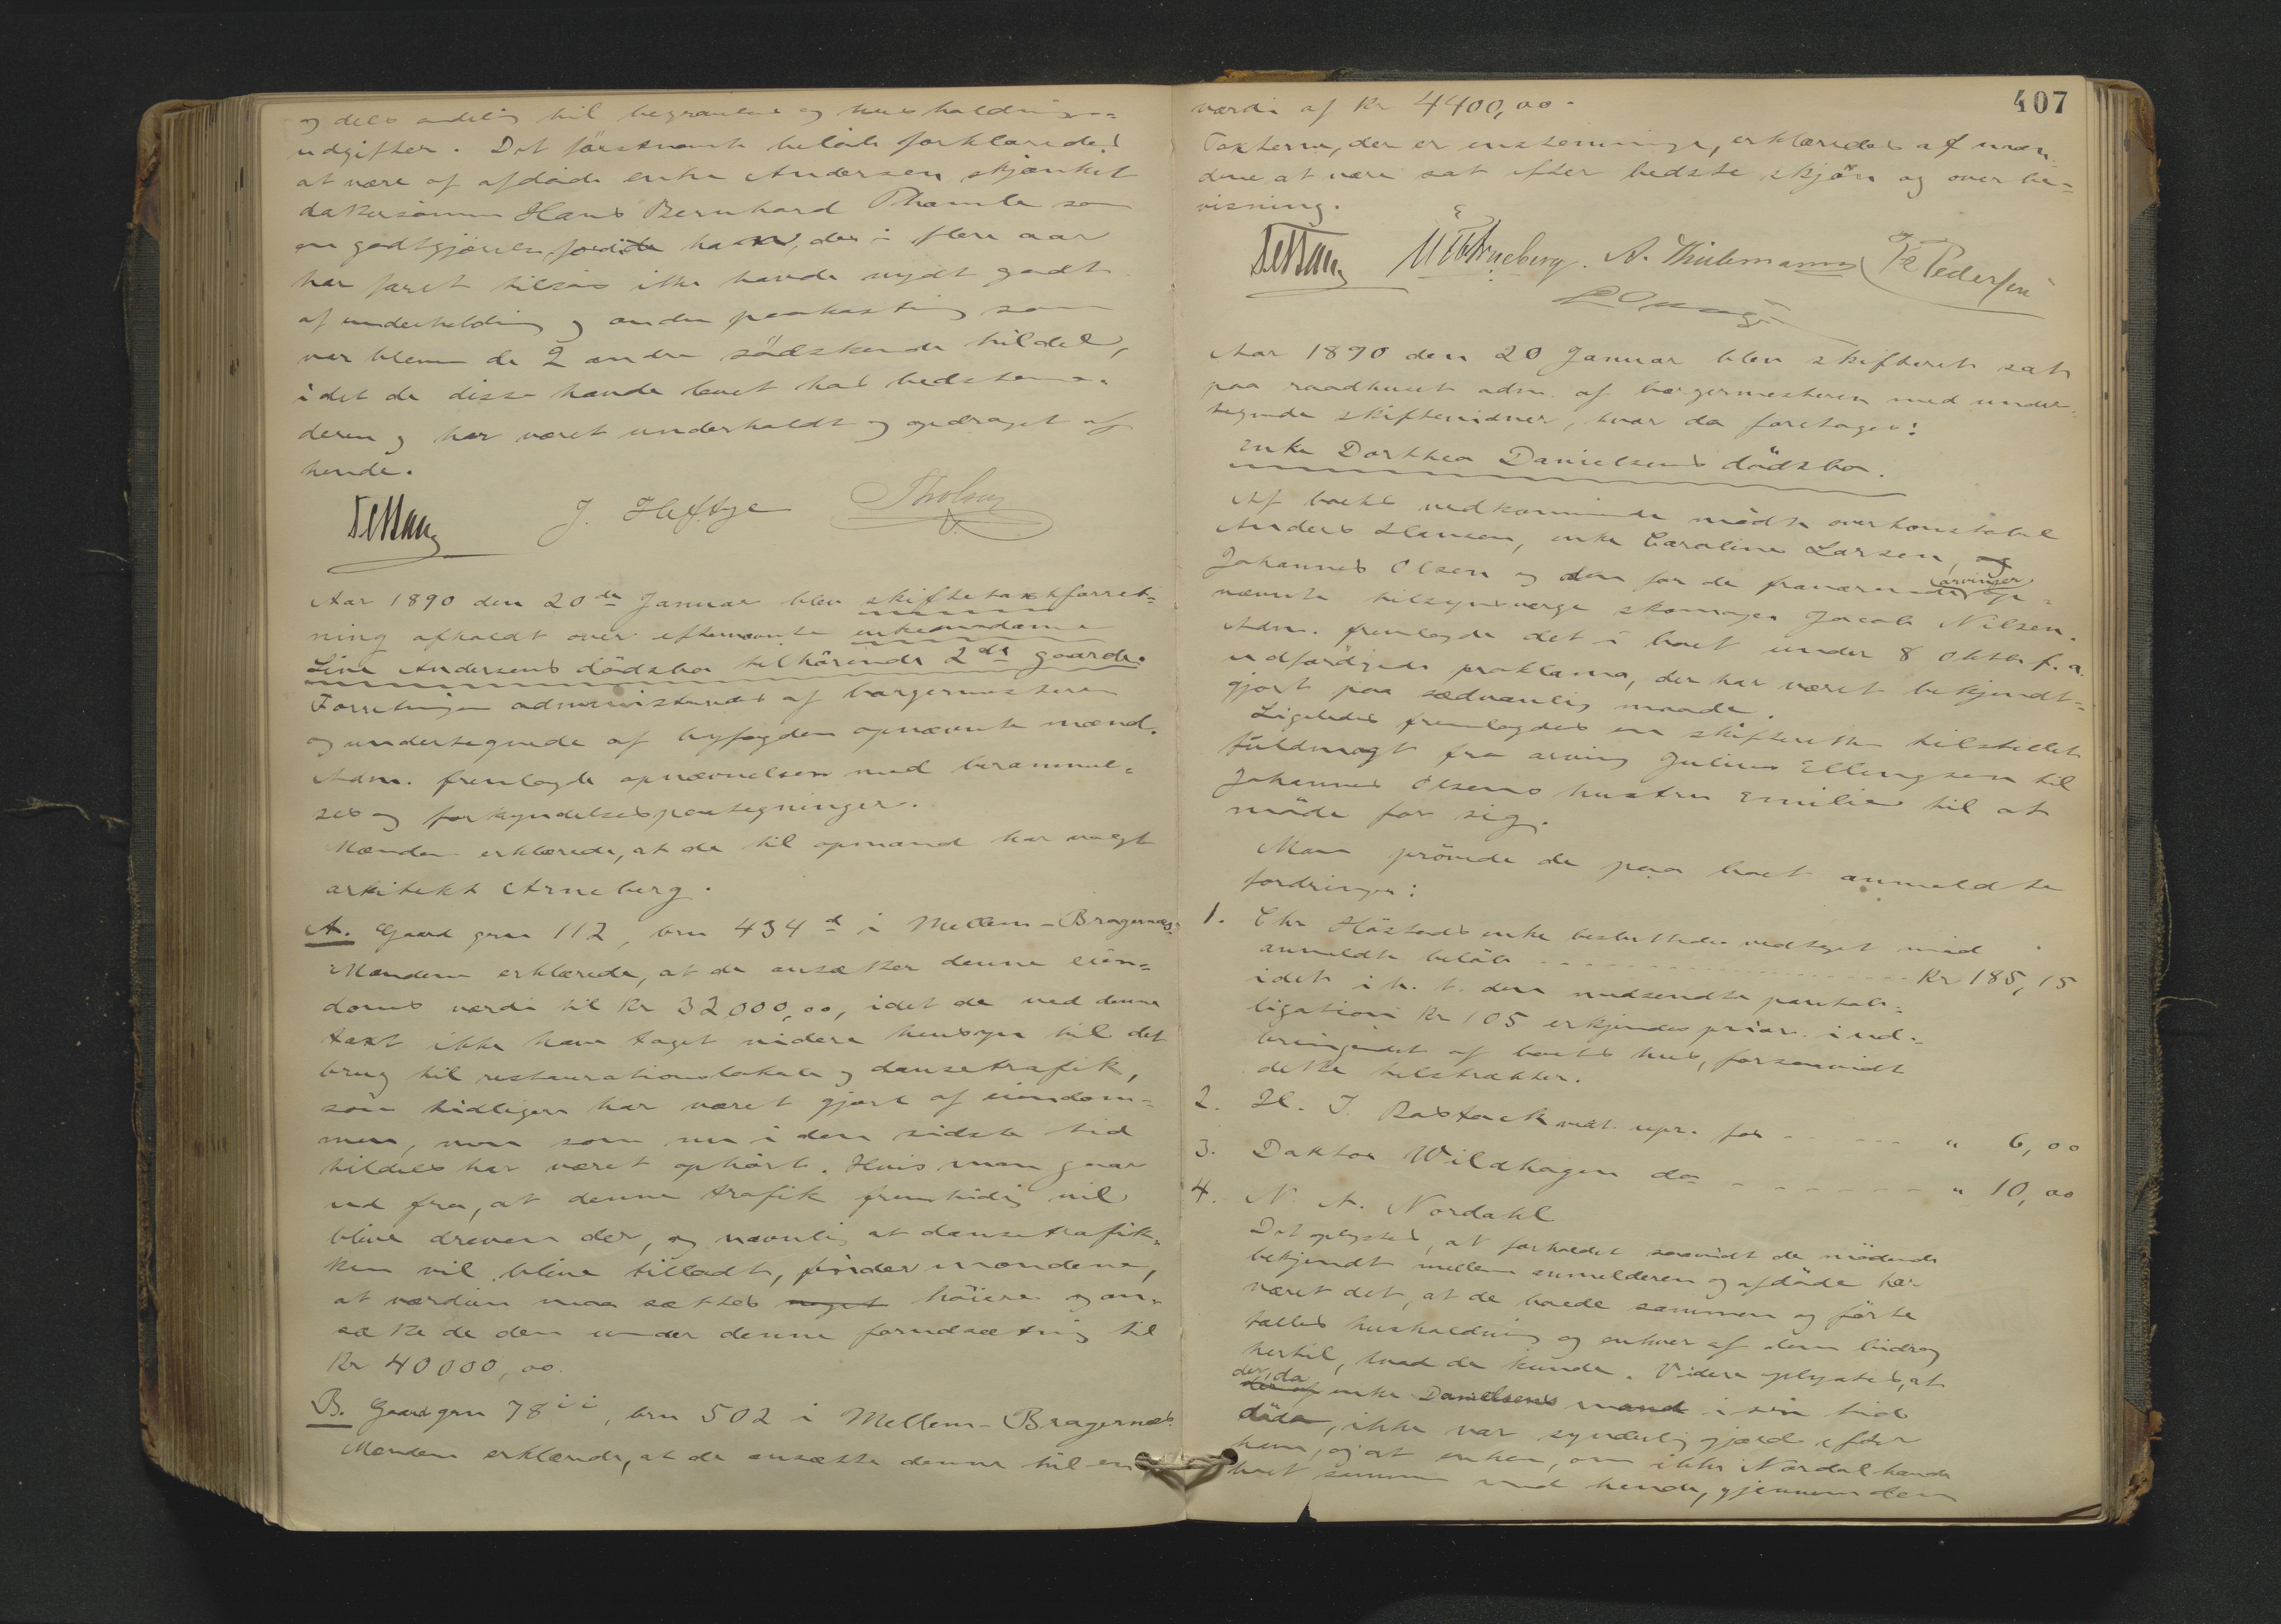 og dels endelig til begravelses og husholdnings=
udgifter. Det förstnævnte belöb forklaredes
at være af afdöde enke Andersen skjænket
dattersönnen Hans Bernhard Thamle som
en godtgjörelse fordi han, der i flere aar
har faret tilsös ikke havde nydt godt
af underholdning og anden paakostning som
var bleven de 2 andre södskende tildel,
idet de disse havde boet hos bedstemo=
deren og har været underholdt og opdraget af
hende.
J. Heftye
Aar 1890 den 20de Januar blev skiftetaxtforret=
ning afholdt over efternævnte enkemadame
Line Andersens dödsbo tilhörende 2de gaarde.
Forretningen administreredes af borgermesteren
og undertegnede af byfogden opnævnte mænd.
Adm. fremlagde opnævnelsen med berammel=
ses og forkyndelsespaategninger.
Mændene erklærede, at de til opmand har valgt
arkitekt Arneberg.
A. Gaard grn 112, brn 434d i Mellem-Bragernæs.
Mændene erklærede, at de ansætter denne eien=
doms værdi til Kr 32000,00, idet de ved denne
taxt ikke have taget videre hensyn til det
brug til restaurationslokale og dansetrafik,
som tidligere har været gjort af eiendom=
men, men som nu i den sidste tid
tildels har været ophört. Hvis man gaar
ud fra, at denne trafik fremtidig vil
blive dreven der, og navnlig at dansetrafik=
ken vil blive tilladt, finder mændene,
at værdien maa sættes noget höiere og an=
sætte de den under denne forudsætning til
Kr 40000,00.
B. Gaard grn 78ii, brn 502 i Mellem-Bragernæs.
Mændene erklærede, at de ansætte denne til en
407
værdi af Kr 4400,00.
Taxterne, der er enstemmige, erklæredes af mæn=
dene at være sat efter bedste skjön og overbe=
visning.
Arneberg. A. Thielemann Pedersen
Aar 1890 den 20 Januar blev skifteret sat
paa raadhuset adm. af borgermesteren med under=
tegnede skiftevidner, hvor da foretages:
Enke Dorthea Danielsens dödsbo.
Af boets vedkommende mödte overkonstabel
Anders Hansen, enke Caroline Larsen, og
Johannes Olsen og den for de fraværende arvinger op=
nævnte tilsynsværge skomager Jacob Nilsen.
Adm. fremlagde det i boet under 8 Oktbr f.a.
udfærdigede proklama, der har været bekjendt=
gjort paa sædvanlig maade.
Ligeledes fremlagdes en skifteretten tilstillet
fuldmagt fra arving Julius Ellingsen til
Johannes Olsens hustru Emilie til at
möde for sig.
Man prövede de paa boet anmeldte
fordringer:
1. Chr Hästads enke besluttedes vedtaget med
anmeldte belöb - - - Kr 185,15
idet i h. t. den medsendte panteob=
ligation Kr 105 erkjendes prior. i ud=
bringendet af boets hus, forsaavidt
dette tilstrækker.
2. H. J. Backstack vedt. upr. for - - - " 6,00
3. Doktor Wildhagen do - - - " 10,00
4. N. A. Nordahl
Det oplystes, at forholdet saavidt de mödende
bekjendt mellem anmelderen og afdöde har
været det, at de boede sammen og förte
fælles husholdning og enhver af dem bidrog
hertil, hvad de kunde. Videre oplystes, at
der, da enke Danielsens mand i sin tid
döde, ikke var synderlig gjæld efter
ham, og at enken, om ikke Nordal havde
boet sammen med hende, gjennem den